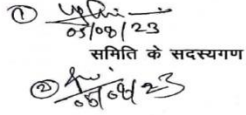 ①
05/09/23
समिति के सदस्यगण
②
05/09/23